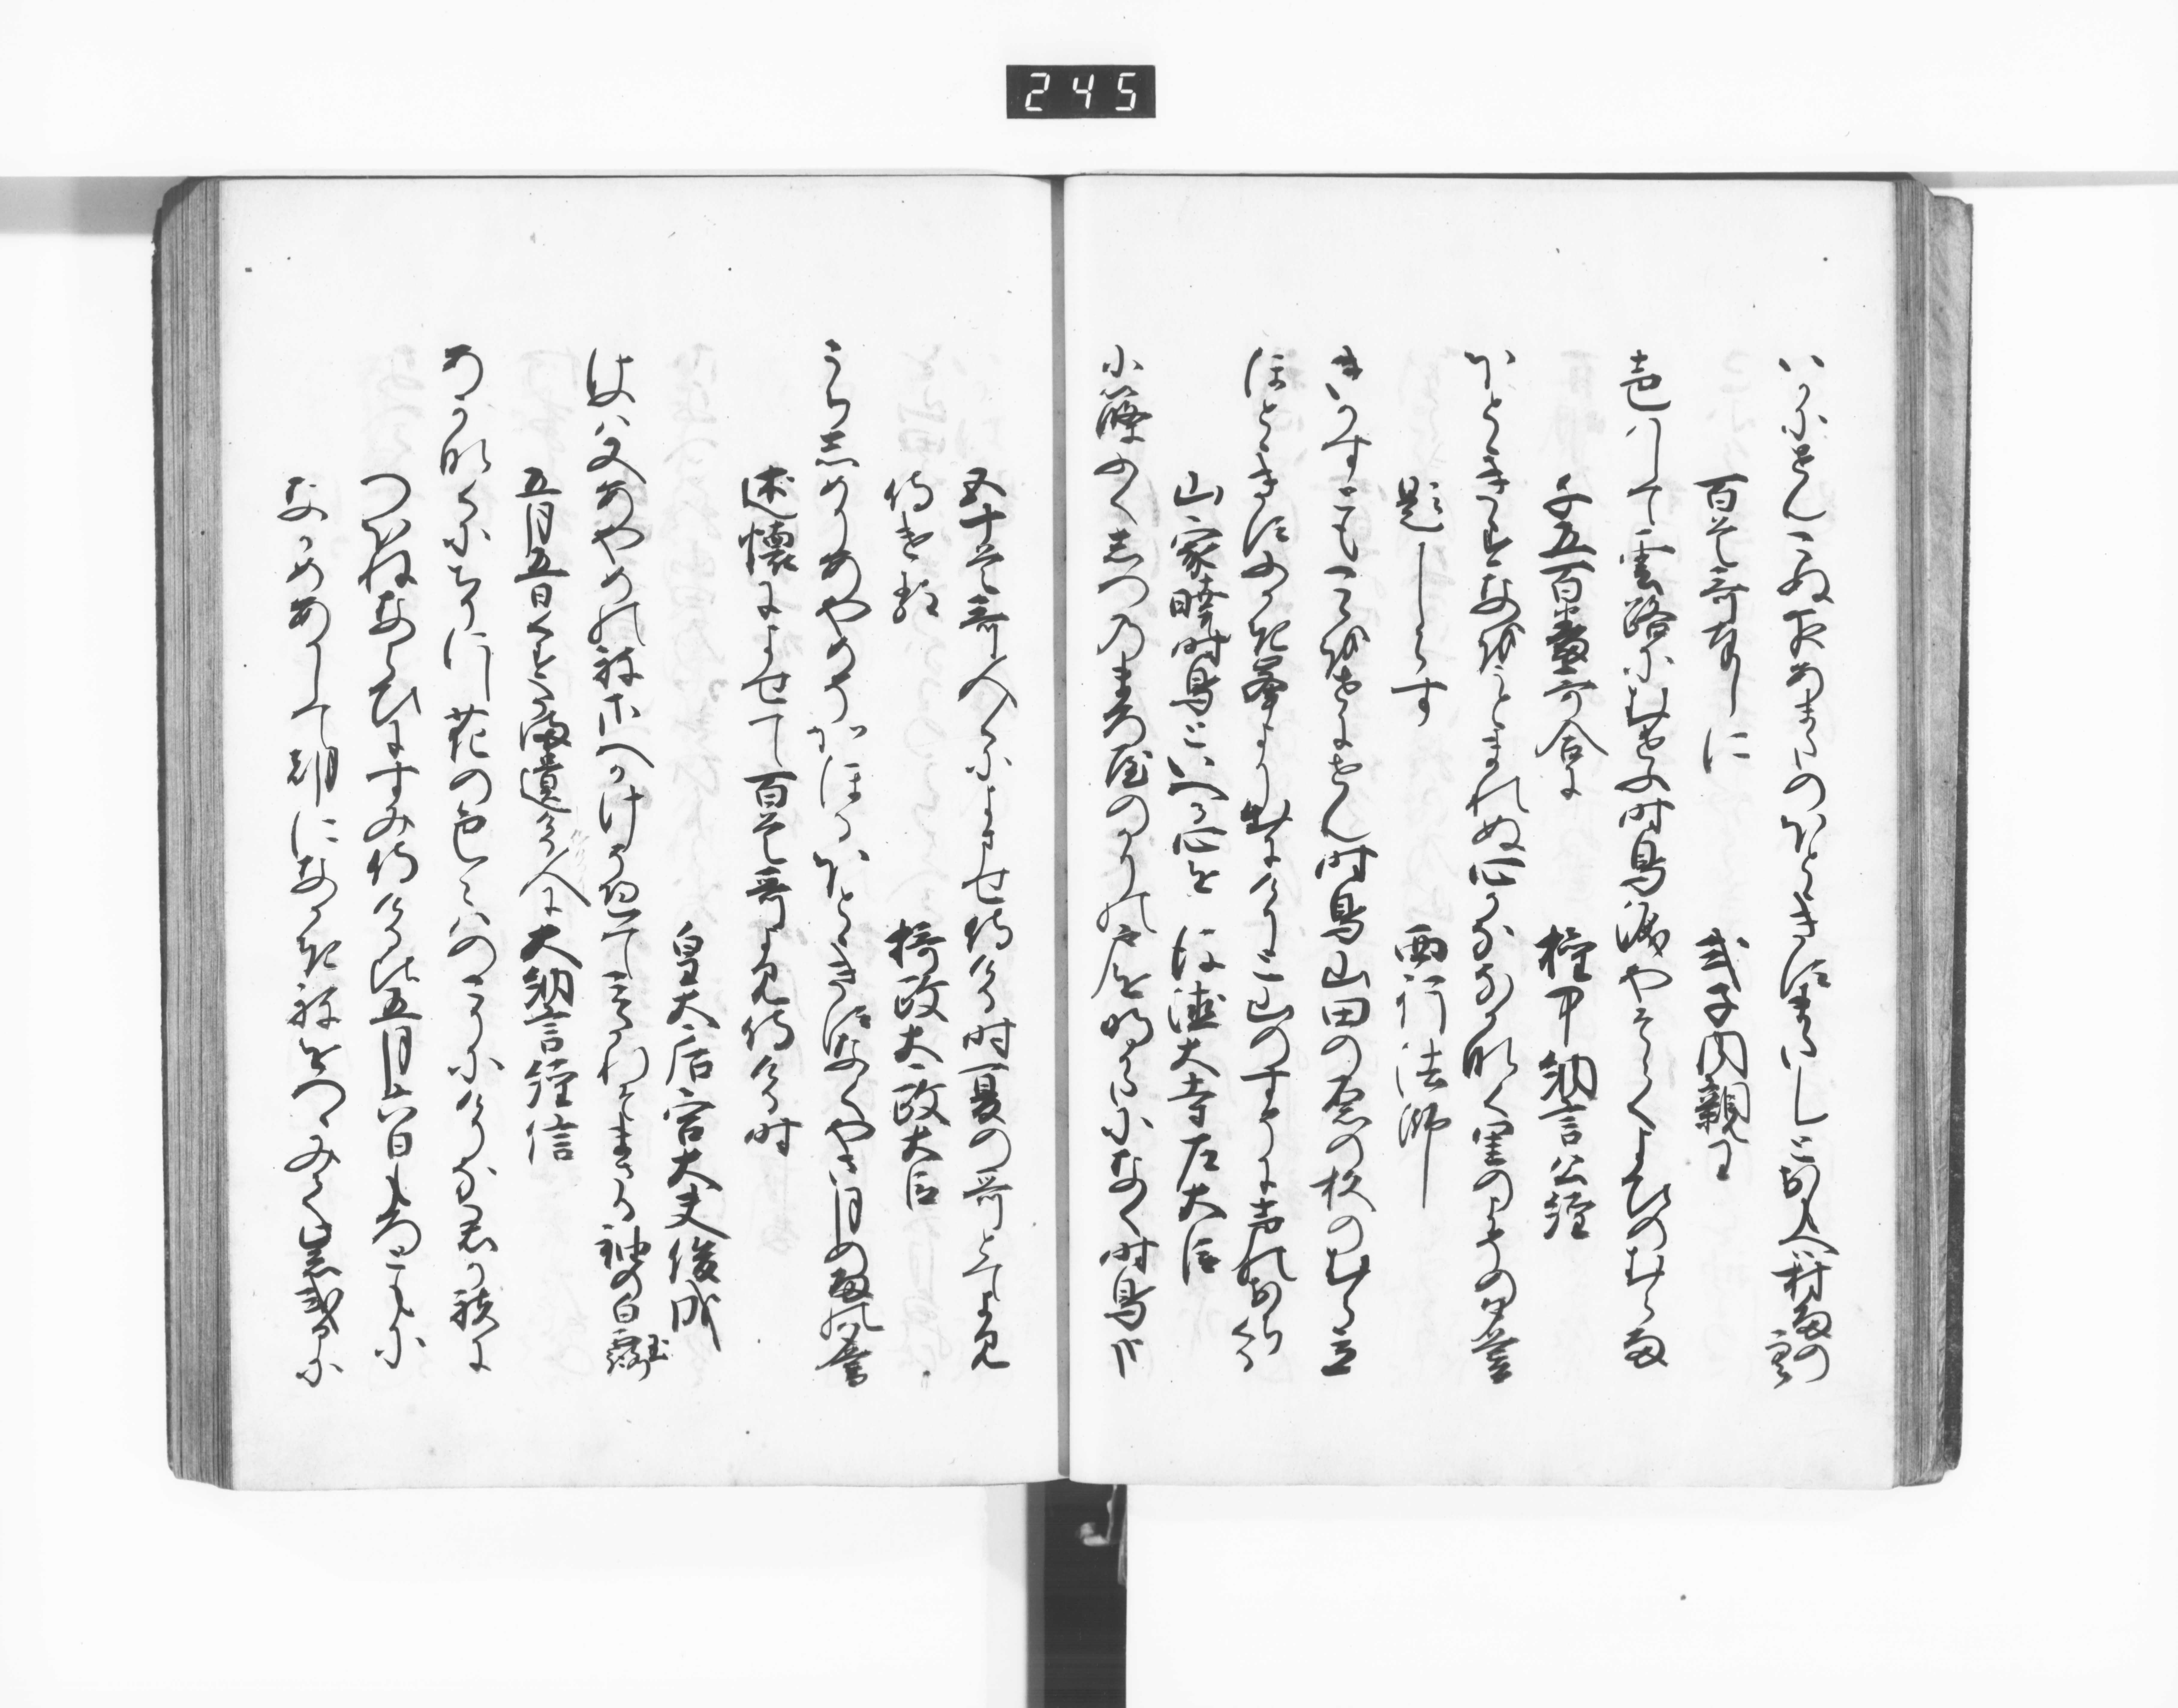 245
いかにせんこぬ夜あまたのほとゝきすまたしと思へは村雨の空
百首哥奉しに　式子内親王
声はして雲路にむせふ時鳥涙やそゝくよひのむら雨
千五百番哥合に　権中納言公経
ほとゝきす猶うとまれぬ心かななかなく里のよその夕暮
題しらす　西行法師
きかすともこゝをせにせん時鳥山田の原の杉のむら立
ほとゝきすふかき峯より出にけりと山のすそに声のおちくる
山家暁時鳥といへる心を　後徳大寺左大臣
小篠ふくしつのまろ屋のかりの戸を明かたになく時鳥哉
五十首哥人々によませ侍ける時夏の哥とてよみ
侍ける　摂政太政大臣
うちしめりあやめそかほるほとゝきすなくや五月の雨の夕暮
述懐によせて百首哥よみ侍ける時
皇太后宮大夫俊成
けふは又あやめのねさへかけそへて乱そまさる袖の白玉
五月五日くす玉つかはして侍ける人に　大納言経信
あかなくにちりにし花の色々はのこりにけりな君か袂に
つほねならひにすみ侍ける比五月六日もろともに
なかめあかして朝になかきねをつゝみて紫式部に